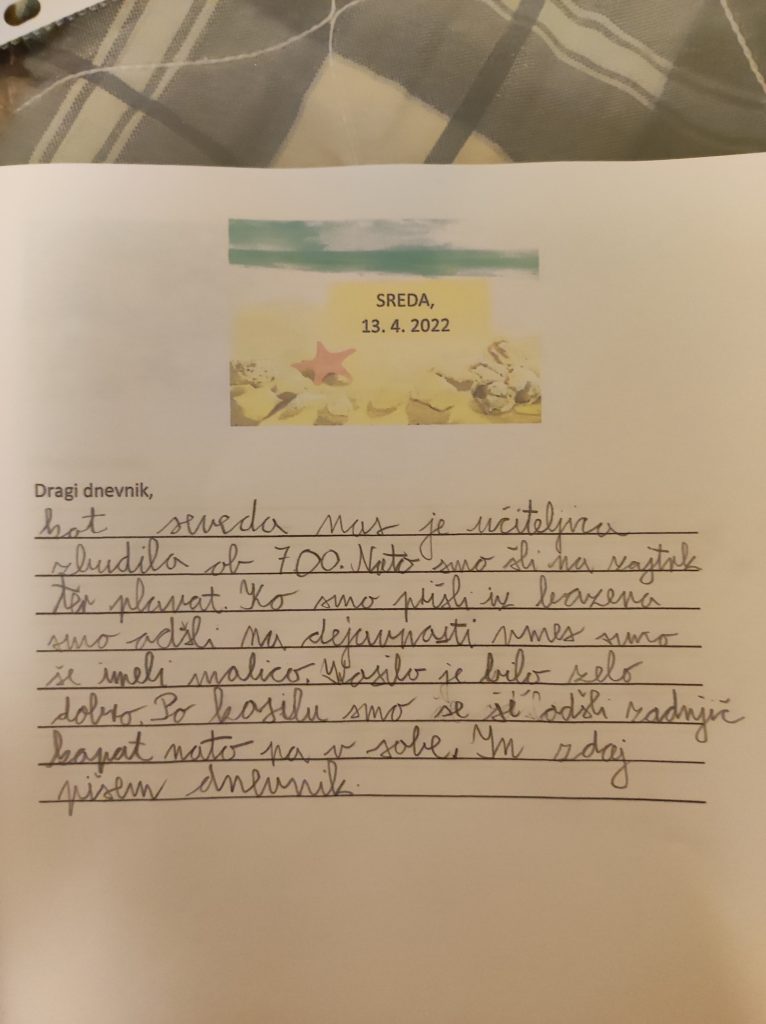 SREDA,
13. 4. 2022
Dragi dnevnik,
kot seveda nas je učiteljica
zbudila ob 700. Nato smo šli na zajtrk
ter plavat. Ko smo prišli iz bazena
smo odšli na dejavnosti vmes smo
še imeli malico. Kosilo je bilo zelo
dobro. Po kosilu smo še odšli zadnjič
kopat nato pa v sobe. In zdaj
pišem dnevnik.